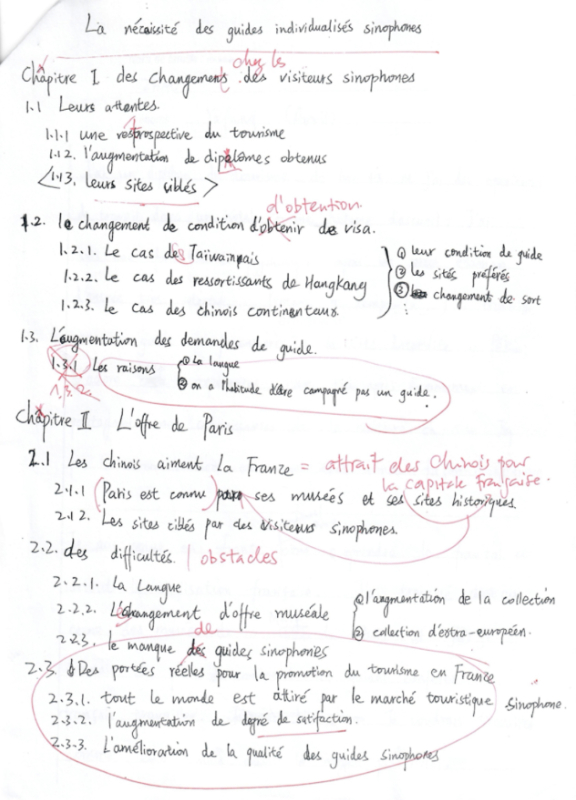 La nécaissité des guides individualisés sinophones
chez les
Chapitre I des changements des visiteurs sinophones
1.1 Leurs attentes
1.1.1 une prospective du tourisme
1.1.2. l'augmentation de diplômes obtenus
<1.1.3. leurs sites ciblés>
d'obtention
1.2. le changement de condition d'obtenir de visa.
1.2.1. Le cas des Taïwainais
① leur condition de guide
1.2.2. Le cas des ressortissants de Hangkang
② les sités préférés
1.2.3. Le cas des chinois continentaux
③ changement de sort
1.3. L'augmentation des demandes de guide.
1.3.1 Les raisons
① La langue
② on a l'habitude d'être campagné pas un guide.
1.3.2a
Chapitre II L'offre de Paris
2.1 Les chinois aiment la Franze = attrait des Chinois pour
la capitale française.
2.1.1 (Paris est connu) ses musées et ses sites historiques.
2.1.2. Les sites ciblés par des visiteurs sinophones.
2.2. des difficultés. | obstacles
2.2.1. La Langue
2.2.2. L'changement d'offre muséale
① l'augmentation de la collection
② collection d'extra-européen.
de
2.2.3. le manque des guides sinophones
2.3. Des portées réelles pour la promotion du tourisme en France
2.3.1. tout le monde est attiré par le marché touristique sinophone.
2.3.2. l'augmentation de degré de satifaction.
2.3.3. L'amélioration de la qualité des guides sinophones